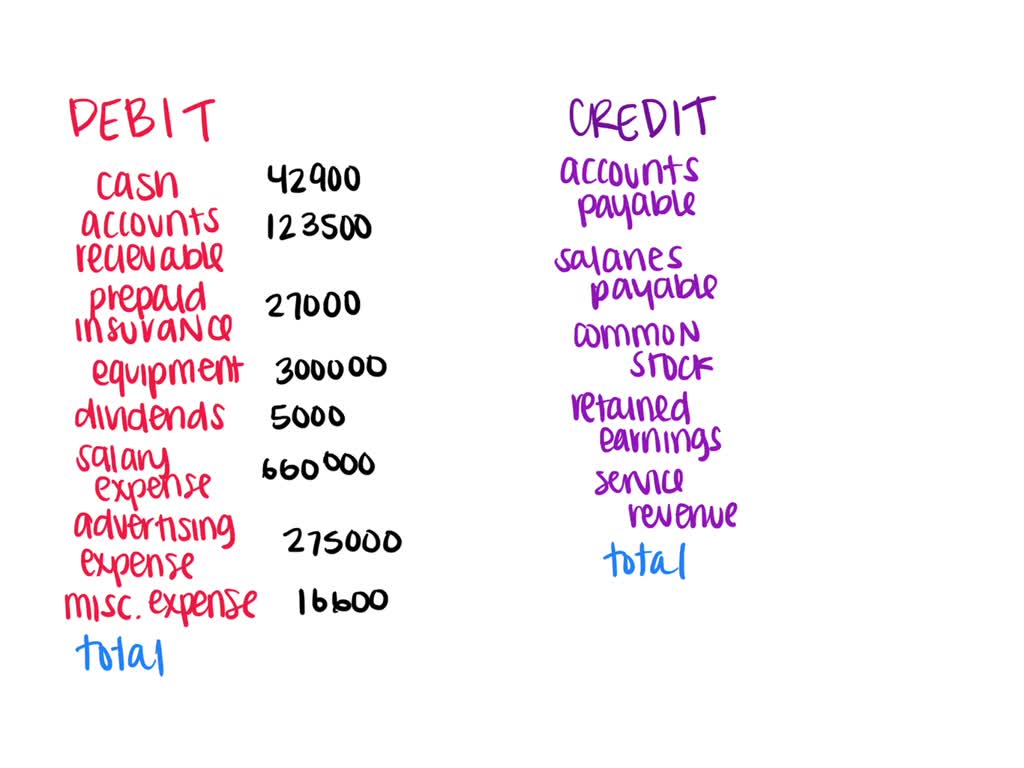 DEBIT
cash 42900
accounts 123500
recievable
prepaid 27000
insurance
equipment 300000
dividends 5000
salary
expense 660000
advertising
expense 275000
misc. expense 16600
total
CREDIT
accounts
payable
salaries
payable
common
stock
retained
earnings
service
revenue
total